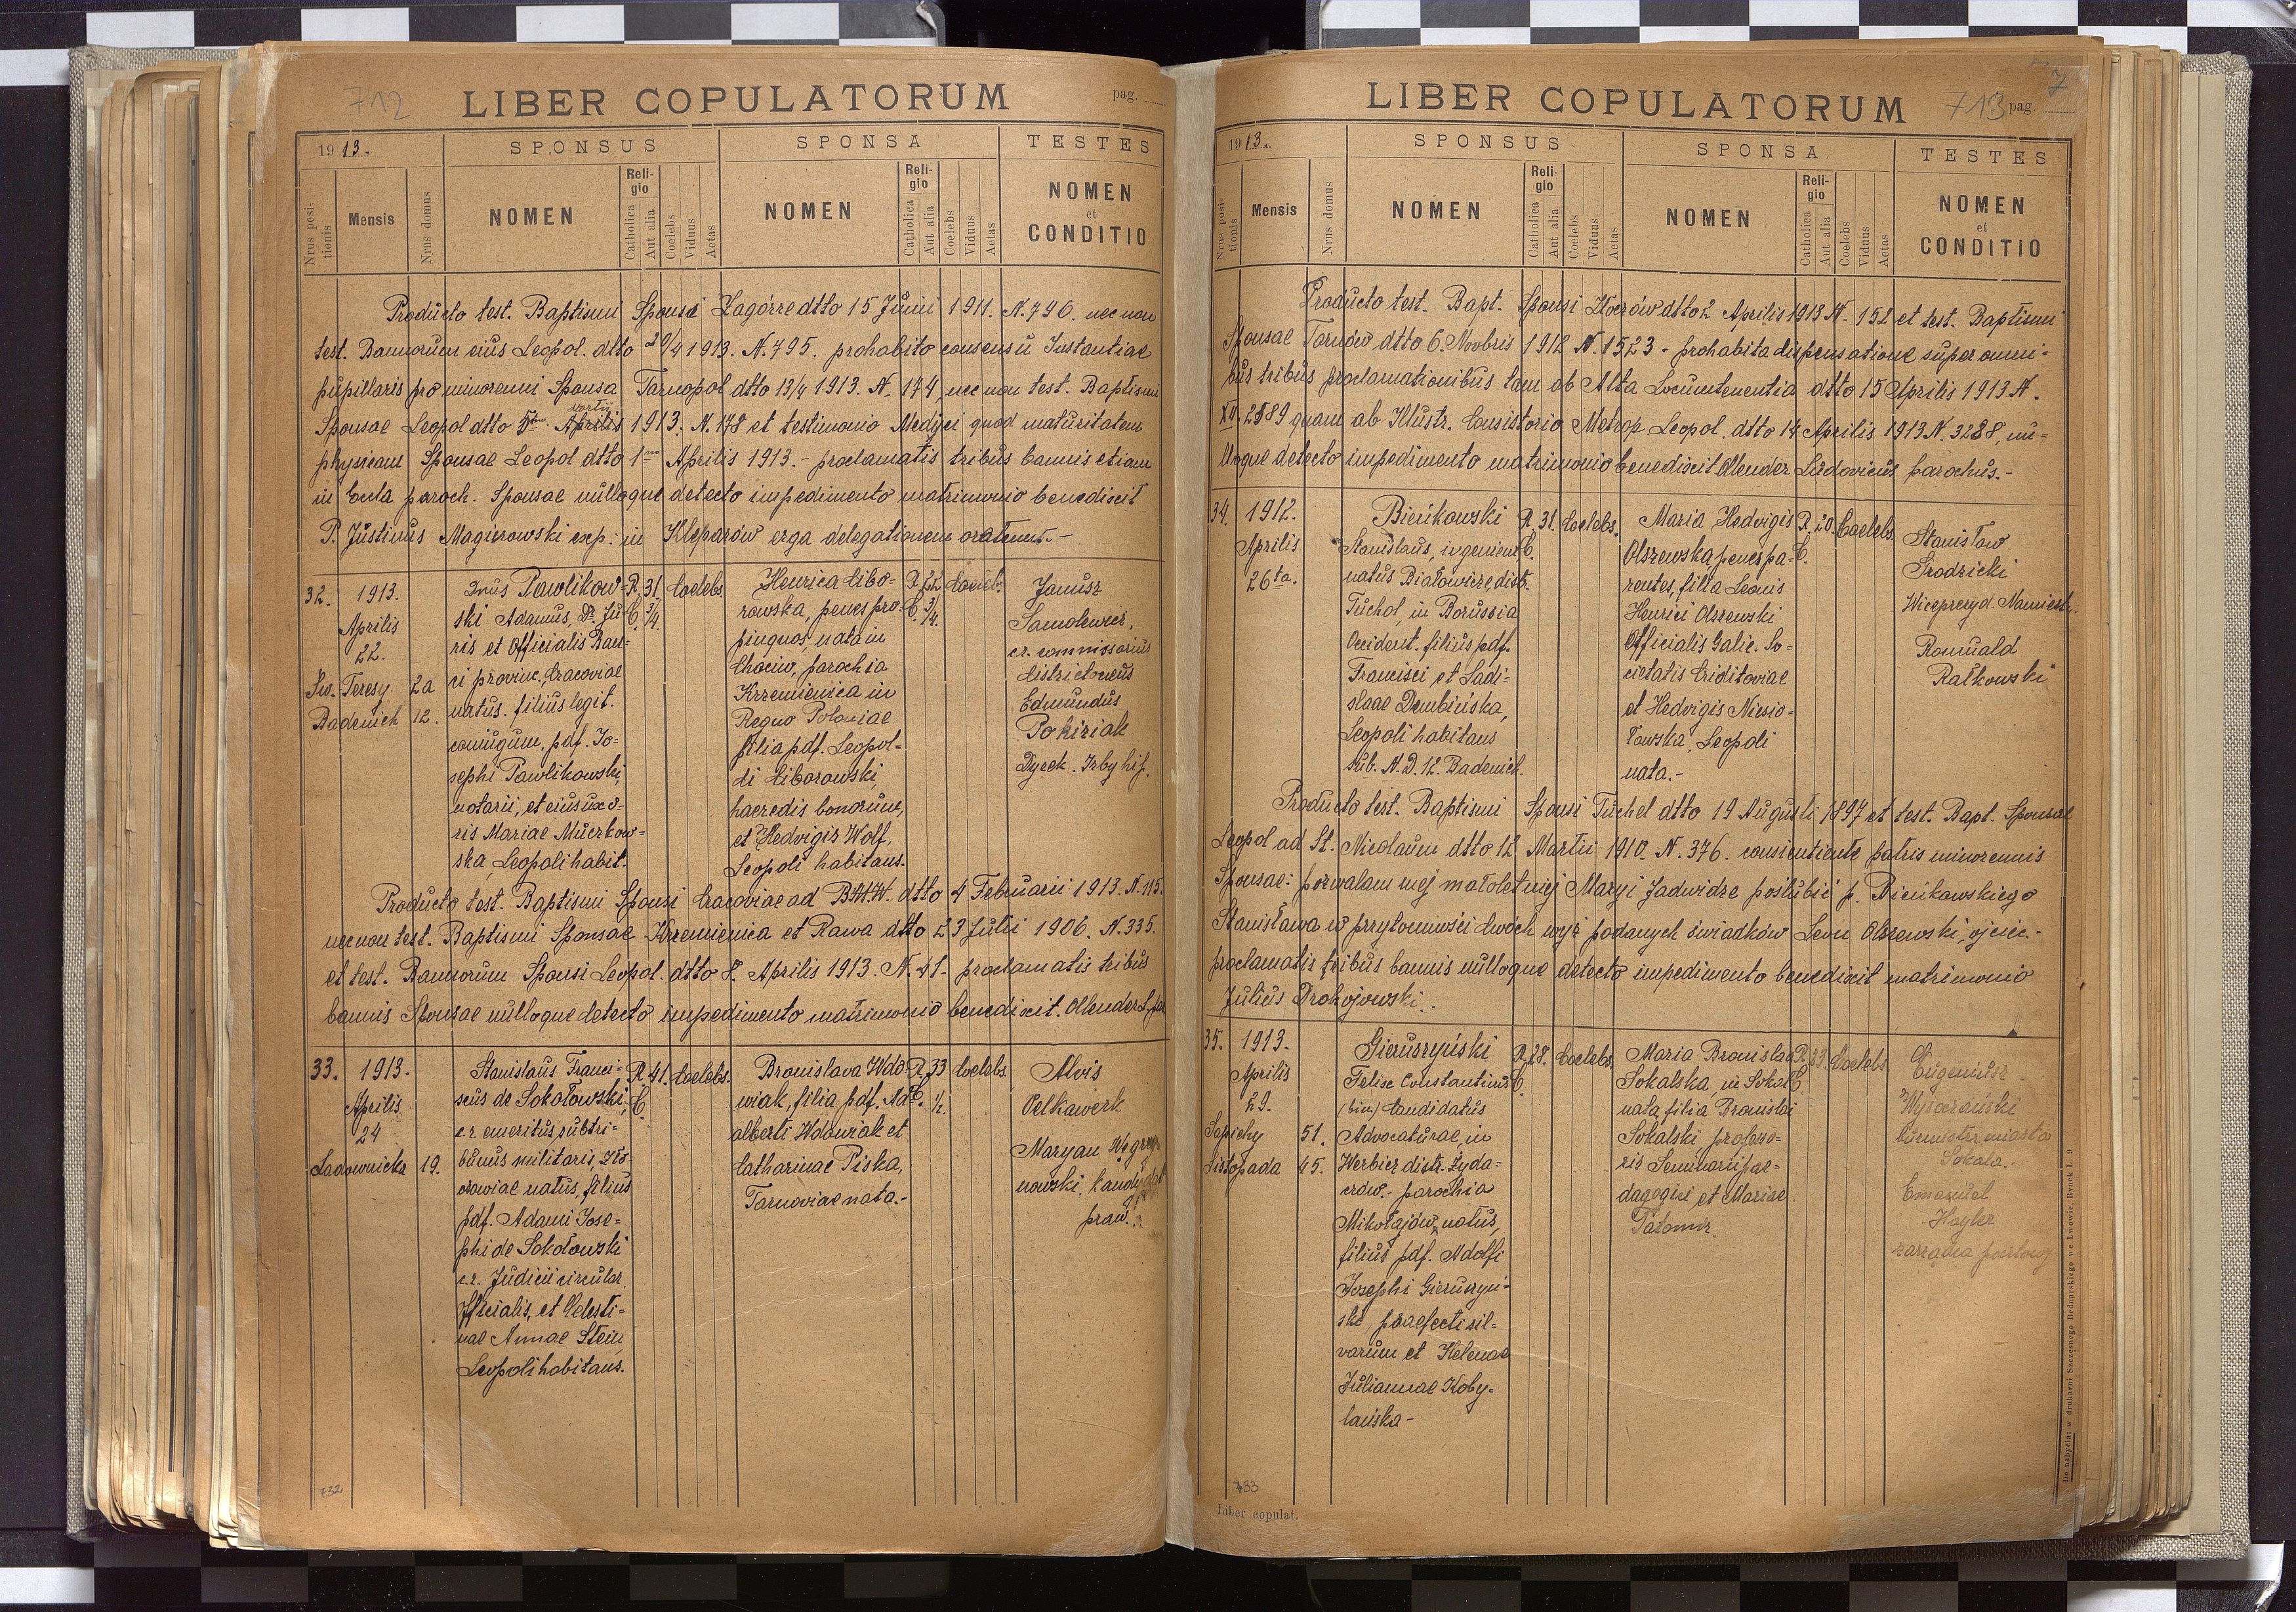 712
LIBER COPULATORUM
pag.
1913.
SPONSUS
SPONSA
TESTES
Nrus positionis
Mensis
Nrus domus
NOMEN
Religio
Catholica
Aut alia
Coelebs
Viduus
Aetas
NOMEN
Religio
Catholica
Aut alia
Coelebs
Viduus
Aetas
NOMEN
et
CONDITIO
Producto test. Baptismi Sponsi Zagórze dtto 15 Junii 1911. N. 796. nec non
test. Bannorum eius Leopol. dtto 20/4 1913. N. 795. prohabito consensu Instantiae
pupillaris pro minorenni Sponsa Tarnopol dtto 13/4 1913. N. 174, nec non test. Baptismi
Sponsae Leopol dtto Aprilis 1913. N. 178 et testimonio Medici quod maturitatem
physicam Sponsae Leopol dtto 1ma Aprilis 1913.- proclamatis tribus bannis etiam
in Eccla paroch. Sponsae nulloque detecto impedimento matrimonio benedixit
P. Justinus Magierowski exp. in Kleparów erga delegationem oretenus.-
32.
1913.
Aprilis
22.
Sw. Teresy 2a
Badenich 12.
Dnus Pawlikow-
ski Adamus, Dr. Ju-
ris et Officialis Ban-
ci provinc, Cracoviae
natus. filius legit.
coniugum. pdf. Jo-
sephi Pawlikowski,
notarii, et eius uxo-
ris Mariae Muczkow-
ska, Leopoli habit.
R.
C.
31
3/4.
Coelebs
Henrica Cibo-
rowska, penes pro-
pinquos, nata in
Chociw, parochia
Krzemienica in
Regno Poloniae
filia pdf. Leopol-
di Ciborowski,
haeredis bonorum,
et Hedvigis Wolf,
Leopoli habitans.
R.
C.
22
3/4.
Coeleb.
Janusz
Samolewicz,
c.r. commissarius
districtuus
Edmundus
Pokiziak
Dyrek. Izby hip.
Producto test. Baptismi Sponsi Cracoviae ad dtto 4 Februarii 1913. N. 115.
nec non test. Baptismi Sponsae Krzemienica et Rawa dtto 23 Julii 1906. N. 335.
et test. Bannorum Sponsi Leopol. dtto 8. Aprilis 1913. N. 41- proclamatis tribus
bannis Sponsae nulloque detecto impedimento matrimonio benedixit. Ollender L. par
33.
1913.
Aprilis
24
Sadownicka 19.
Stanislaus Franci-
scus de Sokołowski,
c.r. emeritus subtri-
bunus militaris, Zło-
czowiae natus, filius
pdf. Adami Jose-
phi de Sokołowski
c.r. Judicii circular
officialis, et Celesti-
nae Annae Stein
Leopoli habitans.
R.
C.
41.
Coelebs.
Bronislava Wdo-
wiak, filia pdf. Ad-
alberti Wdowiak et
Catharinae Piska,
Tarnoviae nata.-
R.
C.
33
1/2.
Coelebs
Alvis
Pelkawerk
Maryan Węgrzy-
nowski, kandydat
praw.
732
LIBER COPULATORUM
713 pag.
7
1913.
SPONSUS
SPONSA
TESTES
Nrus positionis
Mensis
Nrus domus
NOMEN
Religio
Catholica
Aut alia
Coelebs
Viduus
Aetas
NOMEN
Religio
Catholica
Aut alia
Coelebs
Viduus
Aetas
NOMEN
et
CONDITIO
Producto test. Bapt. Sponsi dtto 2 Aprilis 1913 N. 152 et test. Baptismi
Sponsae Tarnów dtto 6. Novbris 1912 N. 1523 - prohabita dispensatione super omni-
bus tribus proclamationibus tam ab Alta Locumtenentia dtto 15 Aprilis 1913 N.
2589 quam ab Illustr. Consistorio Metrop. Leopol. dtto 14 Aprilis 1913 N. 3288, nu-
lloque detecto impedimento matrimonio benedixit Ollender Ludovicus parochus.-
34.
1912.
Aprilis
26ta.
Bieńkowski
Stanislaus, ingenieur
natus Białowicze, distr.
Tuchol, in Borussia
Occident. filius pdf.
Francisci et Ladi-
slaae Dembińska,
Leopoli habitans
sub. N. D. 12. Badenich.
R.
C.
31.
Coelebs.
Maria Hedvigis
Olszewska, penes pa-
rentes, filia Leonis
Henrici Olszewski
Officialis Galic. So-
cietatis Criditoviae
et Hedvigis Niesio-
łowska, Leopoli
nata.-
R.
C.
20.
Coelebs.
Stanisław
Grodzicki
Wiceprezyd. Namiestn.
Romuald
Rałkowski
Producto test. Baptismi Sponsi Tuchel dtto 19 Augusti 1897 et test. Bapt. Sponsae
Leopol ad St. Nicolaum dtto 12 Martii 1910. N. 376. consentiente patris minorennis
Sponsae: pozwalam mej małoletniej Maryi Jadwidze poślubić p. Bieńkowskiego
Stanisława w przytomności dwóch wyż podanych świadków Leon Olszewski, ojciec.-
proclamatis tribus bannis nulloque detecto impedimento benedixit matrimonio
Julius Drohojowski.
35.
1913.
Aprilis
29.
Sapiehy 51.
Listopada 45.
Gieruszyński
Felix Constantinus
(bin.) Candidatus
Advocaturae, in
Werbicz distr. Żyda-
czów.- parochia
Mikołajów, natus,
filius pdf. Adolfi
Josephi Gieruszyń-
ski, praefecti sil-
varum et Helenae
Juliannae Koby-
lańska-
R.
C.
28.
Coelebs
Maria Bronislaa
Sokalska, in Sokal
nata, filia Bronislai
Sokalski, profeso-
ris Seminarii pae-
dagogici et Mariae
Tatomir.
R.
C.
Coelebs
Eugeniusz
Wysoczański
burmistrz miasta
Sokala.-
Emanuel
Hayler
zarządca
733
Liber copulat.
Do nabycia: w drukarni Szczęsnego Bednarskiego we Lwowie, Rynek L. 9.